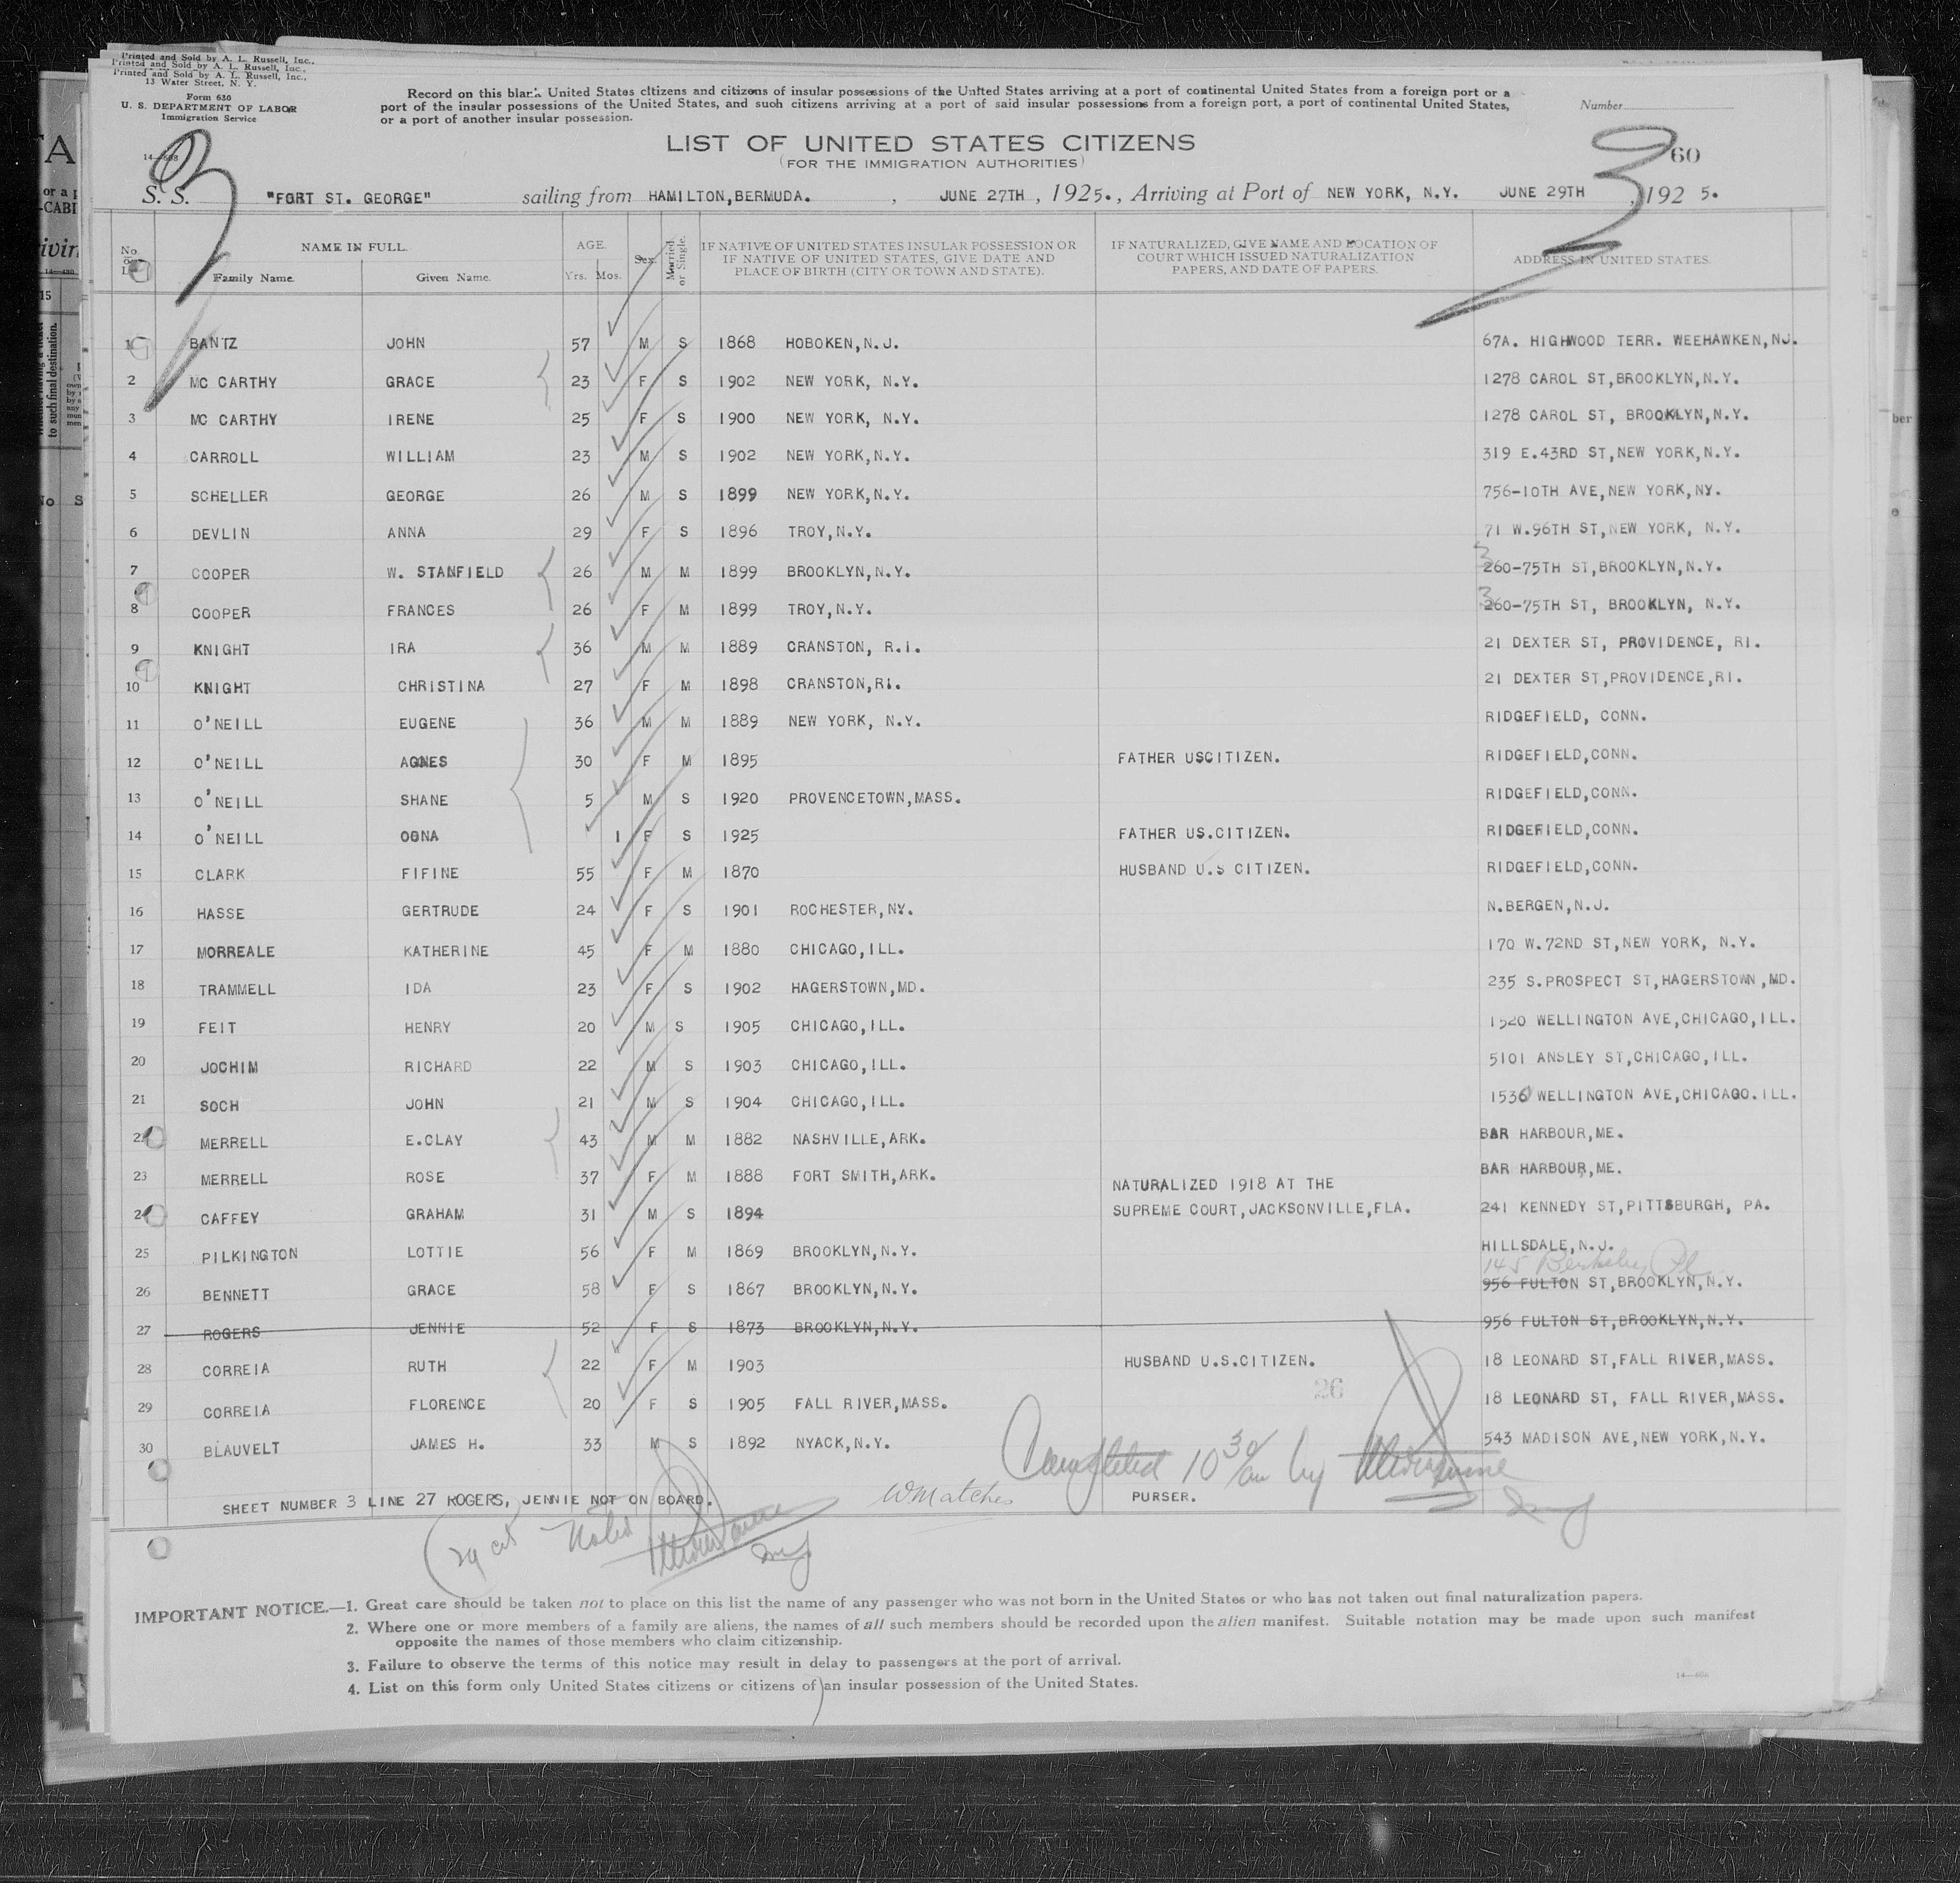 Printed and Sold by A. L. Russell, Inc.,
Printed and Sold by A. L. Russell, Inc.,
Printed and Sold by A. L. Russell, Inc.,
13 Water Street, N. Y.
Form 630
U. S. DEPARTMENT OF LABOR
Immigration Service
Record on this blank United States citizens and citizens of insular possessions of the United States arriving at a port of continental United States from a foreign port or a
port of the insular possessions of the United States, and such citizens arriving at a port of said insular possessions from a foreign port, a port of continental United States,
or a port of another insular possession.
Number
LIST OF UNITED STATES CITIZENS
(FOR THE IMMIGRATION AUTHORITIES)
3
3
60
S. S. "FORT ST. GEORGE" sailing from HAMILTON,BERMUDA. , JUNE 27TH , 1925., Arriving at Port of NEW YORK, N.Y. JUNE 29TH , 192 5.
No. on List NAME IN FULL. AGE. Sex. Married or Single. IF NATIVE OF UNITED STATES INSULAR POSSESSION OR IF NATIVE OF UNITED STATES, GIVE DATE AND PLACE OF BIRTH (CITY OR TOWN AND STATE). IF NATURALIZED, GIVE NAME AND LOCATION OF COURT WHICH ISSUED NATURALIZATION PAPERS, AND DATE OF PAPERS. ADDRESS IN UNITED STATES.
Family Name. Given Name. Yrs. Mos.
1 BANTZ JOHN 57 M S 1868 HOBOKEN,N.J. 67A. HIGHWOOD TERR. WEEHAWKEN,NJ.
2 MC CARTHY GRACE 23 F S 1902 NEW YORK, N.Y. 1278 CAROL ST,BROOKLYN,N.Y.
3 MC CARTHY IRENE 25 F S 1900 NEW YORK, N.Y. 1278 CAROL ST, BROOKLYN,N.Y.
4 CARROLL WILLIAM 23 M S 1902 NEW YORK,N.Y. 319 E.43RD ST,NEW YORK,N.Y.
5 SCHELLER GEORGE 26 M S 1899 NEW YORK,N.Y. 756-10TH AVE,NEW YORK,NY.
6 DEVLIN ANNA 29 F S 1896 TROY,N.Y. 71 W.96TH ST,NEW YORK, N.Y.
7 COOPER W. STANFIELD 26 M M 1899 BROOKLYN,N.Y. 260-75TH ST,BROOKLYN,N.Y.
8 COOPER FRANCES 26 F M 1899 TROY,N.Y. 260-75TH ST, BROOKLYN, N.Y.
9 KNIGHT IRA 36 M M 1889 CRANSTON, R.I. 21 DEXTER ST, PROVIDENCE, RI.
10 KNIGHT CHRISTINA 27 F M 1898 CRANSTON,RI. 21 DEXTER ST,PROVIDENCE,RI.
11 O'NEILL EUGENE 36 M M 1889 NEW YORK, N.Y. RIDGEFIELD, CONN.
12 O'NEILL AGNES 30 F M 1895 FATHER USCITIZEN. RIDGEFIELD,CONN.
13 O'NEILL SHANE 5 M S 1920 PROVENCETOWN,MASS. RIDGEFIELD,CONN.
14 O'NEILL OONA 1 F S 1925 FATHER US.CITIZEN. RIDGEFIELD,CONN.
15 CLARK FIFINE 55 F M 1870 HUSBAND U.S CITIZEN. RIDGEFIELD,CONN.
16 HASSE GERTRUDE 24 F S 1901 ROCHESTER,NY. N.BERGEN,N.J.
17 MORREALE KATHERINE 45 F M 1880 CHICAGO,ILL. 170 W.72ND ST,NEW YORK, N.Y.
18 TRAMMELL IDA 23 F S 1902 HAGERSTOWN,MD. 235 S.PROSPECT ST,HAGERSTOWN,MD.
19 FEIT HENRY 20 M S 1905 CHICAGO,ILL. 1520 WELLINGTON AVE,CHICAGO,ILL.
20 JOCHIM RICHARD 22 M S 1903 CHICAGO,ILL. 5101 ANSLEY ST,CHICAGO,ILL.
21 SOCH JOHN 21 M S 1904 CHICAGO,ILL. 1536 WELLINGTON AVE,CHICAGO.ILL.
22 MERRELL E.CLAY 43 M M 1882 NASHVILLE,ARK. BAR HARBOUR,ME.
23 MERRELL ROSE 37 F M 1888 FORT SMITH,ARK. BAR HARBOUR,ME.
NATURALIZED 1918 AT THE
24 CAFFEY GRAHAM 31 M S 1894 SUPREME COURT,JACKSONVILLE,FLA. 241 KENNEDY ST,PITTSBURGH, PA.
25 PILKINGTON LOTTIE 56 F M 1869 BROOKLYN,N.Y. HILLSDALE,N.J.
145 Berkeley Pl
26 BENNETT GRACE 58 F S 1867 BROOKLYN,N.Y. 956 FULTON ST,BROOKLYN,N.Y.
27 ROGERS JENNIE 52 F S 1873 BROOKLYN,N.Y. 956 FULTON ST,BROOKLYN,N.Y.
28 CORREIA RUTH 22 F M 1903 HUSBAND U.S.CITIZEN. 18 LEONARD ST,FALL RIVER,MASS.
26
29 CORREIA FLORENCE 20 F S 1905 FALL RIVER,MASS. 18 LEONARD ST, FALL RIVER,MASS.
30 BLAUVELT JAMES H. 33 M S 1892 NYACK,N.Y. 543 MADISON AVE,NEW YORK,N.Y.
Completed 10 30/am by
SHEET NUMBER 3 LINE 27 ROGERS, JENNIE NOT ON BOARD. WMatches PURSER.
Noted
IMPORTANT NOTICE.—1. Great care should be taken not to place on this list the name of any passenger who was not born in the United States or who has not taken out final naturalization papers.
2. Where one or more members of a family are aliens, the names of all such members should be recorded upon the alien manifest. Suitable notation may be made upon such manifest
opposite the names of those members who claim citizenship.
3. Failure to observe the terms of this notice may result in delay to passengers at the port of arrival.
4. List on this form only United States citizens or citizens of an insular possession of the United States.